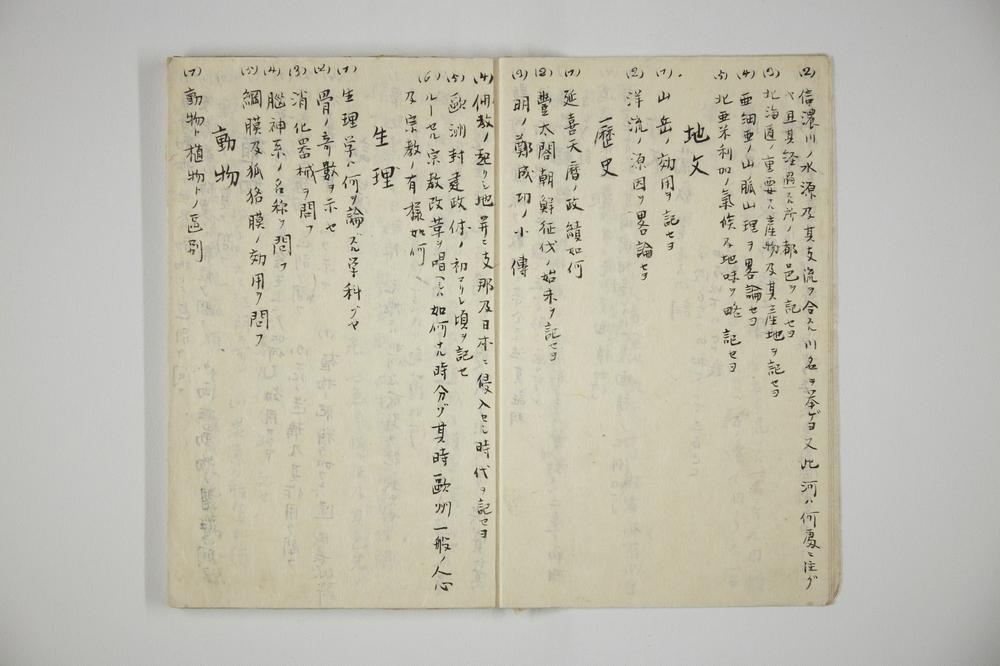 (2) 信濃川ノ水源及其支流ヲ合スル川名ヲ挙ゲヨ又此河ハ何處ニ注グ
ヤ且其経過スル所ノ都邑ヲ記セヨ
(3) 北海道ノ重要ナル産物及其産地ヲ記セヨ
(4) 亜細亜ノ山脈山理ヲ畧論セヨ
(5) 北亜米利加ノ氣候及地味ヲ略記セヨ
地文
(1) 山岳ノ効用ヲ記セヨ
(2) 洋流ノ源因ヲ畧論セヨ
歴史
(1) 延喜天暦ノ政績如何
(2) 豊太閤朝鮮征伐ノ始末ヲ記セヨ
(3) 明ノ鄭成功ノ小傳
(4) 佛教ノ起リシ地并ニ支那及日本ニ侵入セル時代ヲ記セヨ
(5) 歐洲封建政体ノ初マリシ頃ヲ記セ
(6) ルーセル宗教改革ヲ唱ヘシハ如何ナル時分ゾ其時歐州一般ノ人心
及宗教ノ有様如何
生理
(1) 生理学ハ何ヲ論ズル学科ゾヤ
(2) 骨ノ奇數ヲ示セ
(3) 消化器械ヲ問フ
(4) 腦神系ノ名称ヲ問フ
(5) 網膜及狐狢膜ノ効用ヲ問フ
動物
(1) 動物ト植物トノ區別